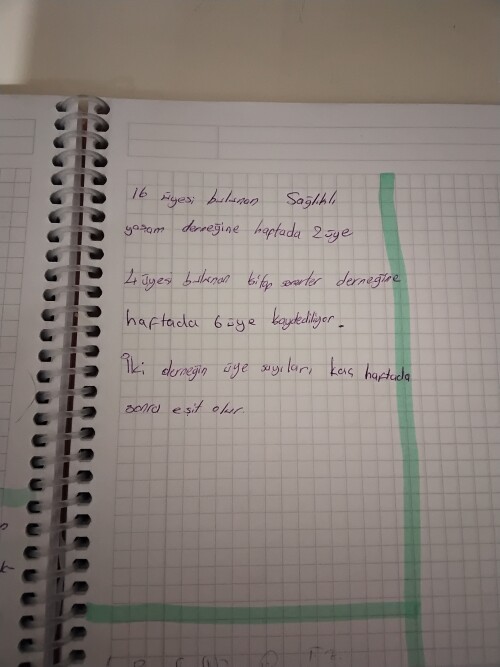 16 üyesi bulunan Sağlıklı
yaşam derneğine haftada 2 üye
4 üyesi bulunan kitap severler derneğine
haftada 6 üye kaydediliyor.
İki derneğin üye sayıları, kaç haftada
sonra eşit olur.